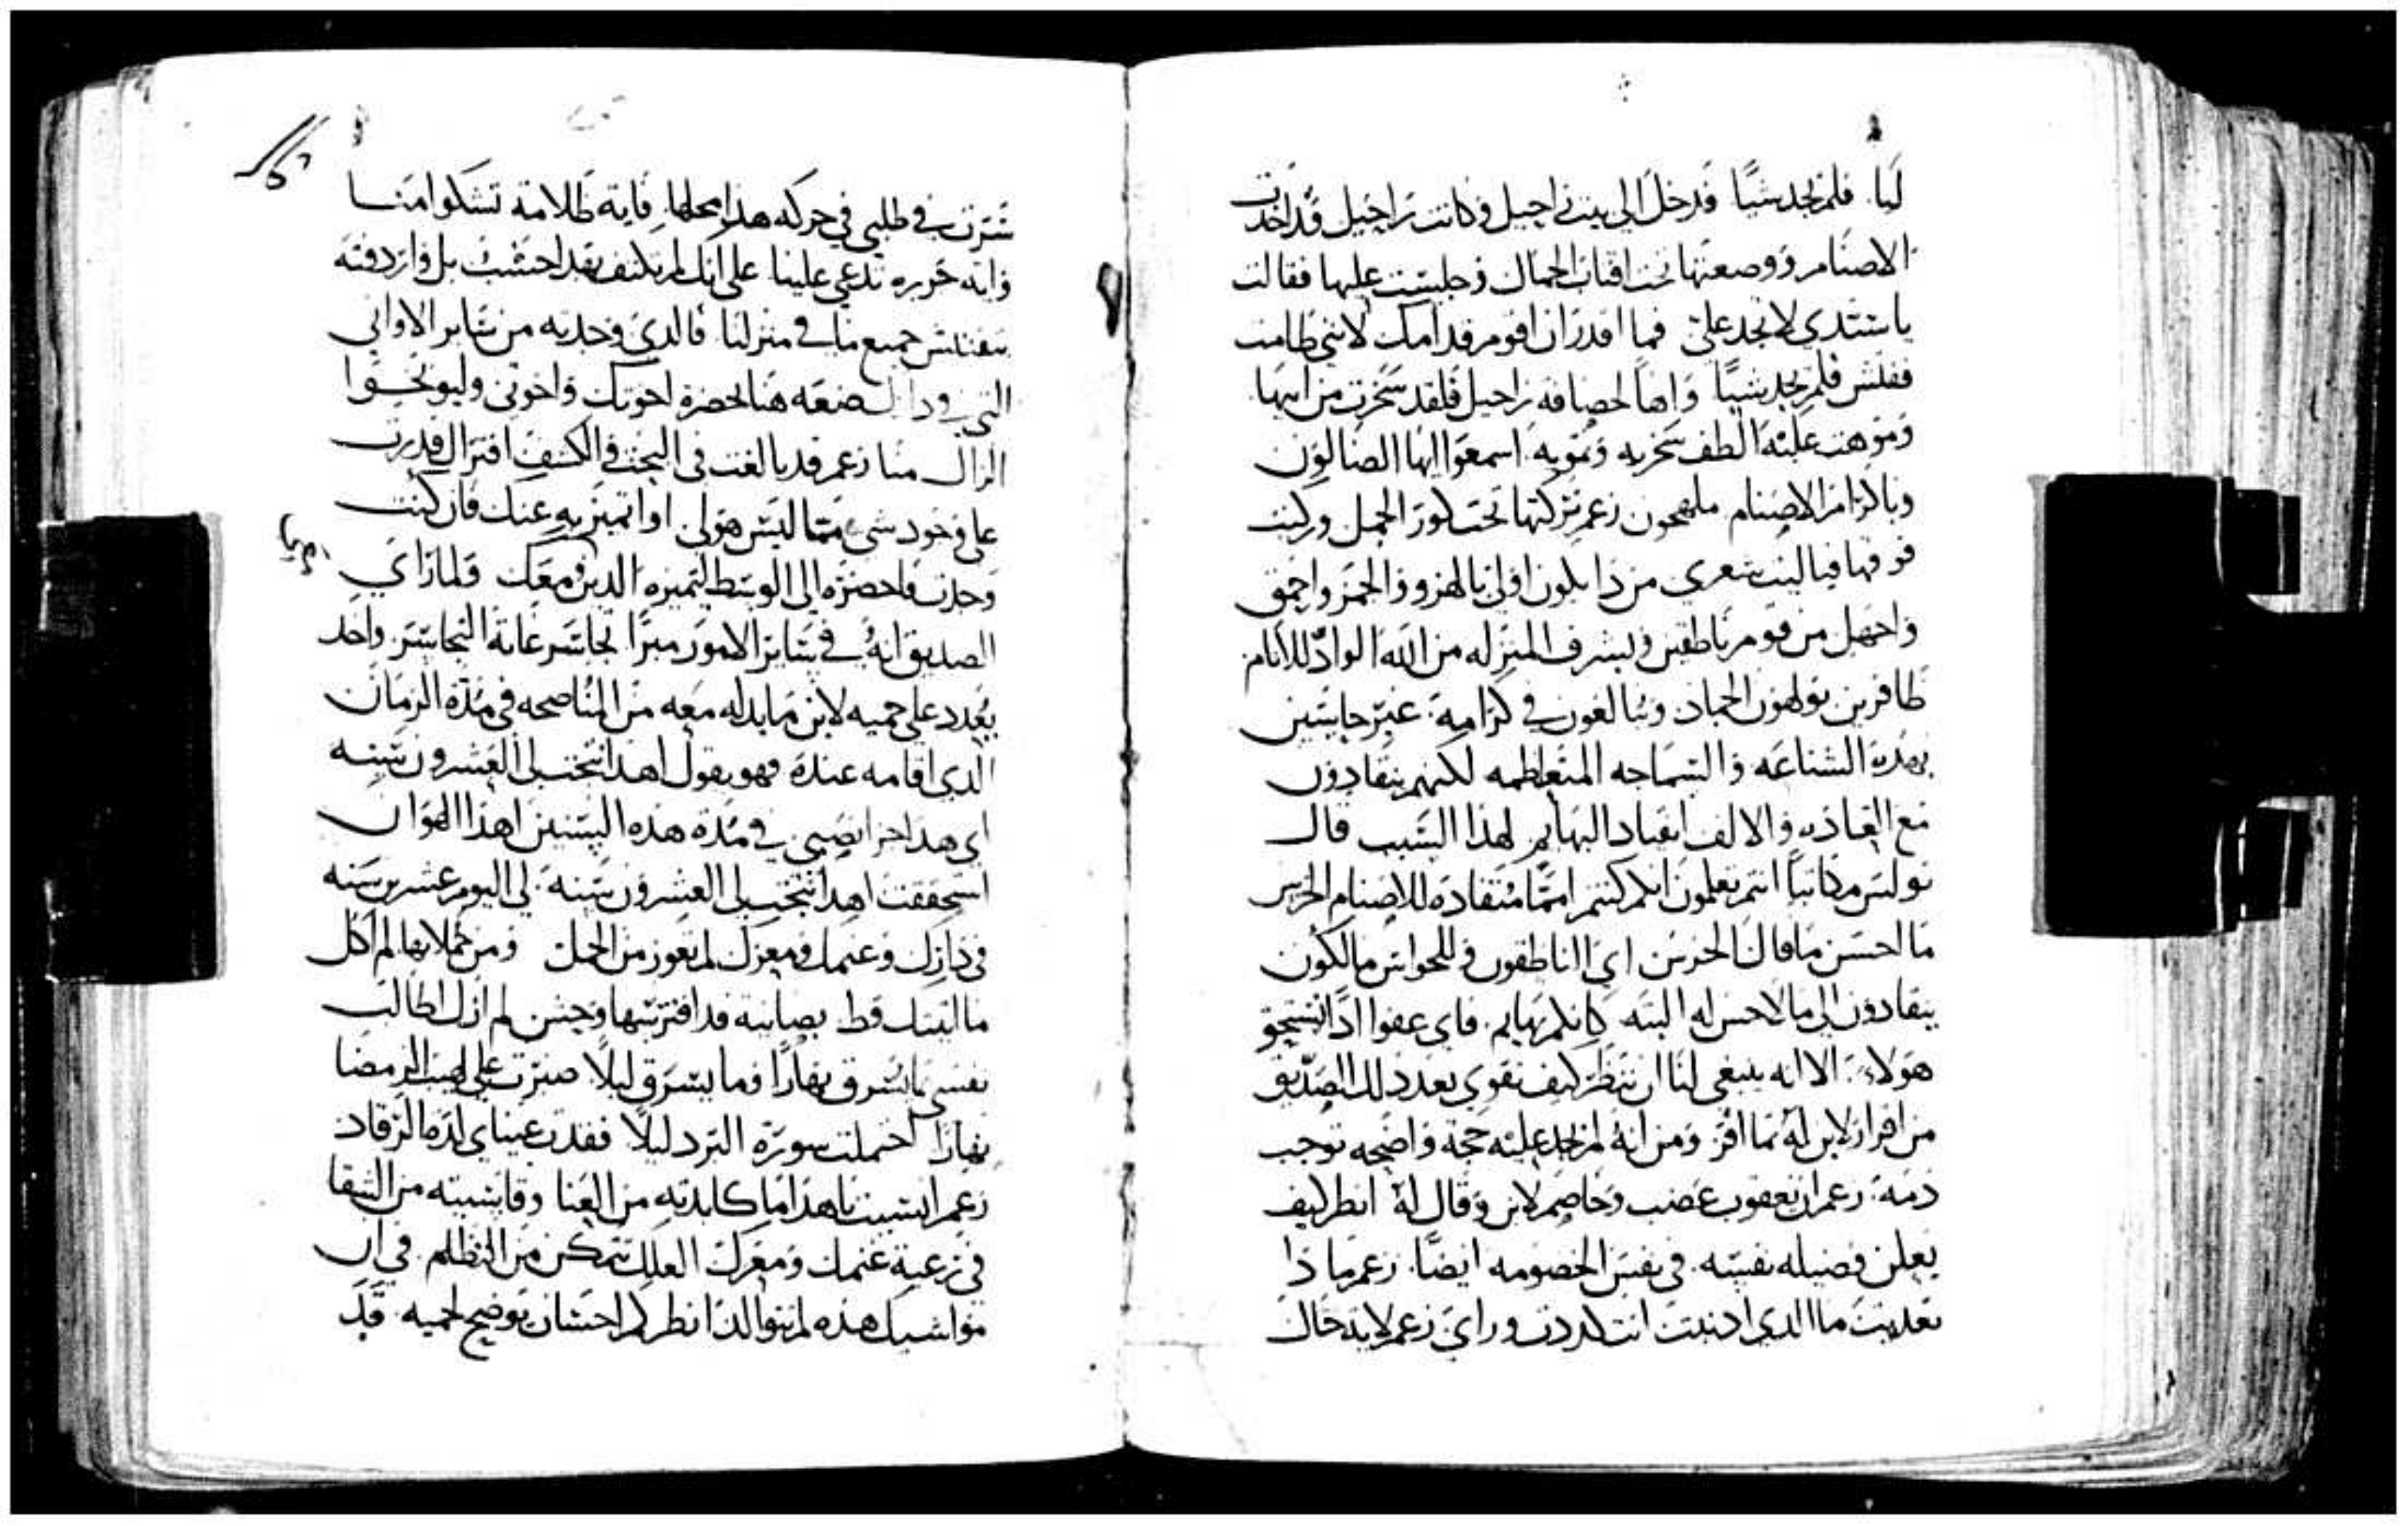 ليا فلم يجد شيًا فدخل الي بيت راحيل وكانت راحيل قد اخذت
الاصنام ووضعتها تحت اقتاب الجمال وجلست عليها فقالت
يا سيدي لا تجد علي فما اقدر ان اقوم قدامك لانني طامث
ففتش فلم يجد شييًا واهًا لحصافه راحيل فلقد سخرت من ابيها
وموهت عليه الطف سخريه وتمويه اسمعوا ايها الضالون
وباكرام الاصنام ملهجون زعم تركتها تحت كور الجمل وركبت
فوقها فياليت شعري من ذا يكون اولي بالهزو والحمز واحمق
واجهل من قوم ناطقين وبشرف المنزله من الله الواد للانام
ظافرين يولهون الجماد ويبالغون في كرامه غير حاسين
بهذه الشناعه والسماجه المتعاظمه لكنهم ينقادون
مع العاده والالف انقياد البهايم لهذا السبب قال
بولس مكاتبًا انتم تعلمون انكم كنتم امما منقاده للاصنام الخرس
ما احسن ما قال الخرس اي الناطقون وللحواس مالكون
ينقادون الي ما لا حس له البته كانكم بهايم فاي عفوا اذًا يستحق
هولاء الا انه ينبغي لنا ان ننظر كيف تقوي بعد ذلك الصديق
من اقرار لابن له بما اقر ومن انه لم يجد عليه حجة واضحه توجب
ذمه زعم ان يعقوب غضب وخاصم لابن وقال له انظر كيف
يعلن فضيله نفسه في نفس الخصومه ايضًا زعم ما ذا
تعديت ما الذي اذنبت انت كددت وراي زعم لاية حال
ثرت في طلبي في حركه هذا محلها فاية ظلامة تشكوا منا
واية جريره تدعي علينا علي انك لم تكتف بقد احتثثت بل واردفته
بتفتيش جميع ما في منزلنا فالذي وجدته من ساير الاواني
التي ضعه هنا بحضرة اخوتك واخوتي وليوبخوا
الزال منا زعم قد بالغت في البحث والكشف اقترال قدرت
علي وجود شي مما ليس هو لي او تميز به عنك فان كنت
وجدت فاحضره الي الوسط لتميزه الذين معك فلما راي
الصديق انه في ساير الامور مبرًا تجاسر غاية التجاسر واخذ
يعدد علي حميه لابن ما بذله معه من المناصحه في مدة الزمان
الذي اقامه عنده فهو يقول اهذا تنجب لي العشرون سنه
اي هذا جزا نصيبي في مدة هذه السنين اهذا الهوان
استحققت اهذا تنجب لي العشرون سنة لي اليوم عشرين سنه
في دارك وغنمك ومعزك لم تعوز من الحمل ومن حملانها لم اكل
ما اتيتك قط بصابية قد افترستها وحش لم ازل اطالب
نفسي ما يسرق نهارًا وما يسرق ليلًا صبرت علي لهيب الرمضا
نهارًا احتملت سورة البرد ليلًا ففقدت عيناي لذة الرقاد
زعم انسيت يا هذا ما كابدته من العنا وقاسيته من الشقا
في رعية غنمك ومعزك العلك تتمكن من التظلم في ان
مواشيك هذه لم تتوالد انظر كم احسان يوضح لحميه قد